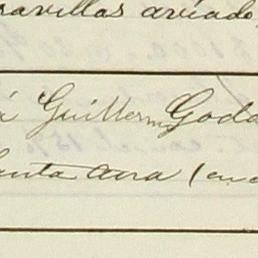 ravillas aviado,
á Guillermo Goda
Santa Ana (en